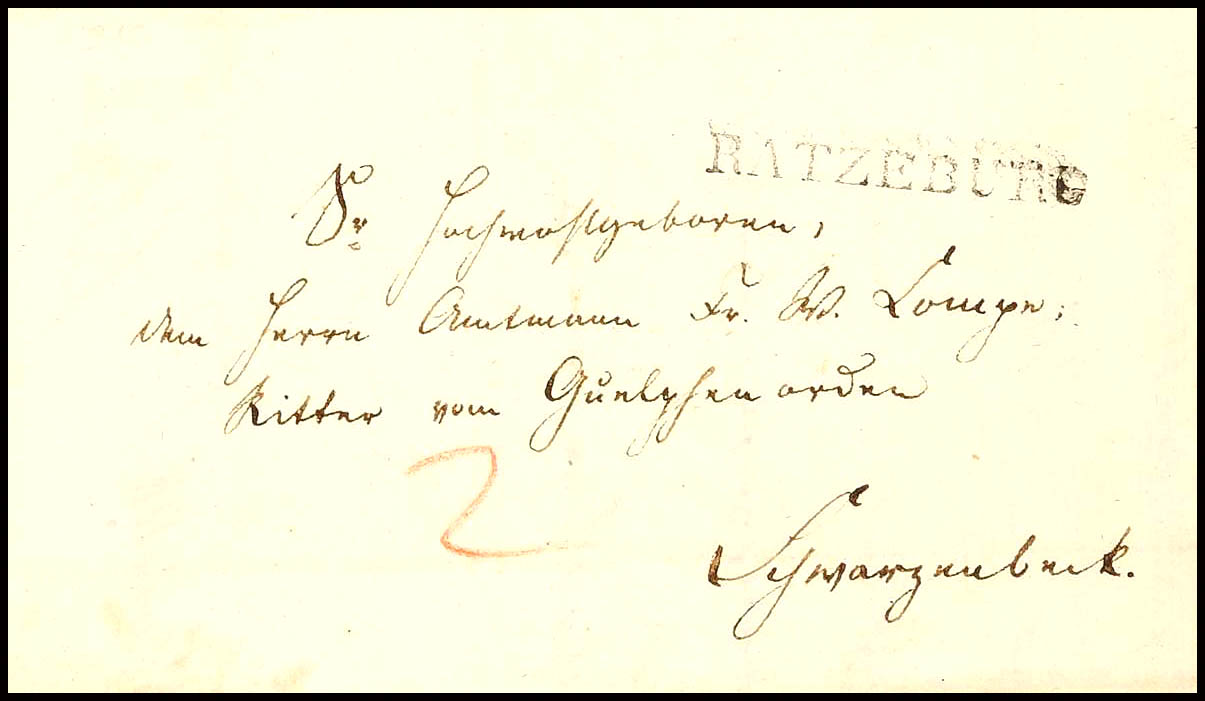 RATZEBURG
Sr Hochwohlgeboren,
dem Herrn Amtmann Fr. W. Compe,
Ritter vom Guelphenorden
2
Schwarzenbeck.